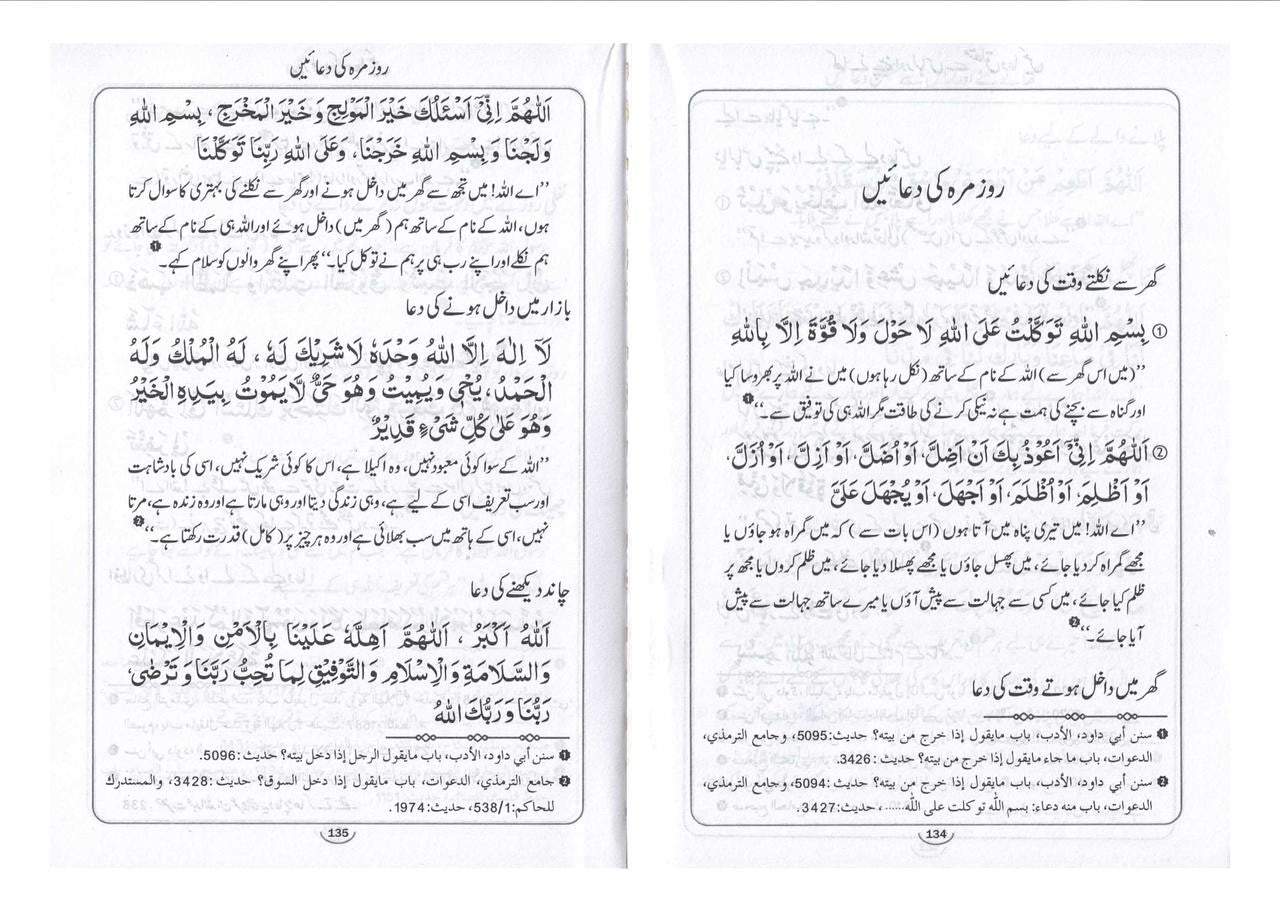 روزمرہ کی دعائیں
گھر سے نکلتے وقت کی دعائیں
① بِسْمِ اللهِ تَوَكَّلْتُ عَلَى اللهِ لَا حَوْلَ وَلَا قُوَّةَ اِلَّا بِاللهِ
’’(میں اس گھر سے) اللہ کے نام کے ساتھ (نکل رہا ہوں) میں نے اللہ پر بھروسا کیا
اور گناہ سے بچنے کی ہمت ہے نہ نیکی کرنے کی طاقت مگر اللہ ہی کی توفیق سے۔‘‘❶
② اَللّٰهُمَّ اِنِّيْٓ اَعُوْذُ بِكَ اَنْ اَضِلَّ، اَوْ اُضَلَّ، اَوْ اَزِلَّ، اَوْ اُزَلَّ،
اَوْ اَظْلِمَ، اَوْ اُظْلَمَ، اَوْ اَجْهَلَ، اَوْ يُجْهَلَ عَلَيَّ
’’اے اللہ! میں تیری پناہ میں آتا ہوں (اس بات سے) کہ میں گمراہ ہو جاؤں یا
مجھے گمراہ کر دیا جائے، میں پھسل جاؤں یا مجھے پھسلا دیا جائے، میں ظلم کروں یا مجھ پر
ظلم کیا جائے، میں کسی سے جہالت سے پیش آؤں یا میرے ساتھ جہالت سے پیش
آیا جائے۔‘‘❷
گھر میں داخل ہوتے وقت کی دعا
❶ سنن أبي داود، الأدب، باب مايقول إذا خرج من بيته؟ حديث:5095، وجامع الترمذي،
الدعوات، باب ما جاء مايقول إذا خرج من بيته؟ حديث :3426.
❷ سنن أبي داود، الأدب، باب مايقول إذا خرج من بيته؟ حديث:5094، وجامع الترمذي،
الدعوات، باب منه دعاء: بسم الله توكلت على الله......، حديث:3427.
134
روزمرہ کی دعائیں
اَللّٰهُمَّ اِنِّيْٓ اَسْئَلُكَ خَيْرَ الْمَوْلِجِ وَخَيْرَ الْمَخْرَجِ، بِسْمِ اللهِ
وَلَجْنَا وَبِسْمِ اللهِ خَرَجْنَا، وَعَلَى اللهِ رَبِّنَا تَوَكَّلْنَا
’’اے اللہ! میں تجھ سے گھر میں داخل ہونے اور گھر سے نکلنے کی بہتری کا سوال کرتا
ہوں، اللہ کے نام کے ساتھ ہم (گھر میں) داخل ہوئے اور اللہ ہی کے نام کے ساتھ
ہم نکلے اور اپنے رب ہی پر ہم نے توکل کیا۔‘‘ پھر اپنے گھر والوں کو سلام کہے۔❶
بازار میں داخل ہونے کی دعا
لَآ اِلٰهَ اِلَّا اللهُ وَحْدَهٗ لَا شَرِيْكَ لَهٗ، لَهُ الْمُلْكُ وَلَهُ
الْحَمْدُ، يُحْيٖ وَيُمِيْتُ وَهُوَ حَيٌّ لَّا يَمُوْتُ بِيَدِهِ الْخَيْرُ
وَهُوَ عَلٰى كُلِّ شَيْءٍ قَدِيْرٌ
’’اللہ کے سوا کوئی معبود نہیں، وہ اکیلا ہے، اس کا کوئی شریک نہیں، اسی کی بادشاہت
اور سب تعریف اسی کے لیے ہے، وہی زندگی دیتا اور وہی مارتا ہے اور وہ زندہ ہے، مرتا
نہیں، اسی کے ہاتھ میں سب بھلائی ہے اور وہ ہر چیز پر (کامل) قدرت رکھتا ہے۔‘‘❷
چاند دیکھنے کی دعا
اَللهُ اَكْبَرُ، اَللّٰهُمَّ اَهِلَّهٗ عَلَيْنَا بِالْاَمْنِ وَالْاِيْمَانِ
وَالسَّلَامَةِ وَالْاِسْلَامِ وَالتَّوْفِيْقِ لِمَا تُحِبُّ رَبَّنَا وَتَرْضٰى،
رَبُّنَا وَرَبُّكَ اللهُ
❶ سنن أبي داود، الأدب، باب مايقول الرجل إذا دخل بيته؟ حديث :5096.
❷ جامع الترمذي، الدعوات، باب مايقول إذا دخل السوق؟ حديث :3428، والمستدرك
للحاكم:538/1، حديث:1974.
135